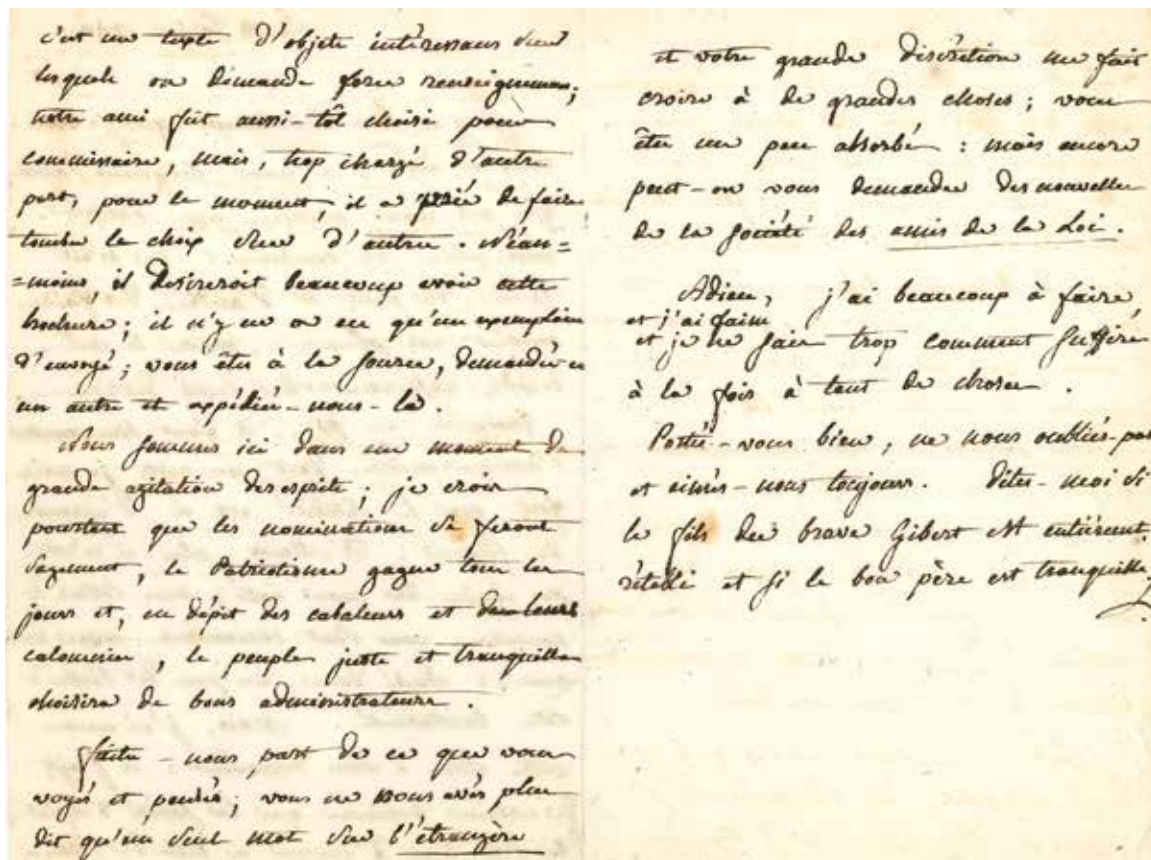 c'est un texte d'objets intéressans sur
lesquels on demande force renseignemens;
notre ami fut aussi-tôt choisi pour
commissaire, mais, trop chargé d'autre
part, pour le moment, il a prié de faire
tomber le choix sur d'autre. Néan-
=moins, il desireroit beaucoup avoir cette
brochure; il n'y en a eu qu'un exemplaire
d'envoyé; vous êtes à la source, demandés en
un autre et expédiés-nous-la.
Nous sommes ici dans un moment de
grande agitation des esprits; je crois
pourtant que les nominations se feront
sagement, le Patriotisme gagne tous les
jours et, en dépit des cabaleurs et de leurs
calomnies, le peuple juste et tranquille
choisira de bons administrateurs.
faites-nous part de ce que vous
voyés et pensés; vous ne nous avés plus
dit qu'un seul mot sur l'étrangère
et votre grande discrétion me fait
croire à de grandes choses; vous
êtes un peu absorbé: mais encore
peut-on vous demander des nouvelles
de la Société des amis de la Loi.
Adieu, j'ai beaucoup à faire,
et j'ai faim
et je ne sais trop comment suffire
à la fois à tant de choses.
Portés-vous bien, ne nous oubliés-pas
et aimés-nous toujours. Dites-moi si
le fils du brave Gibert est entièrement
rétabli et si le bon père est tranquille.